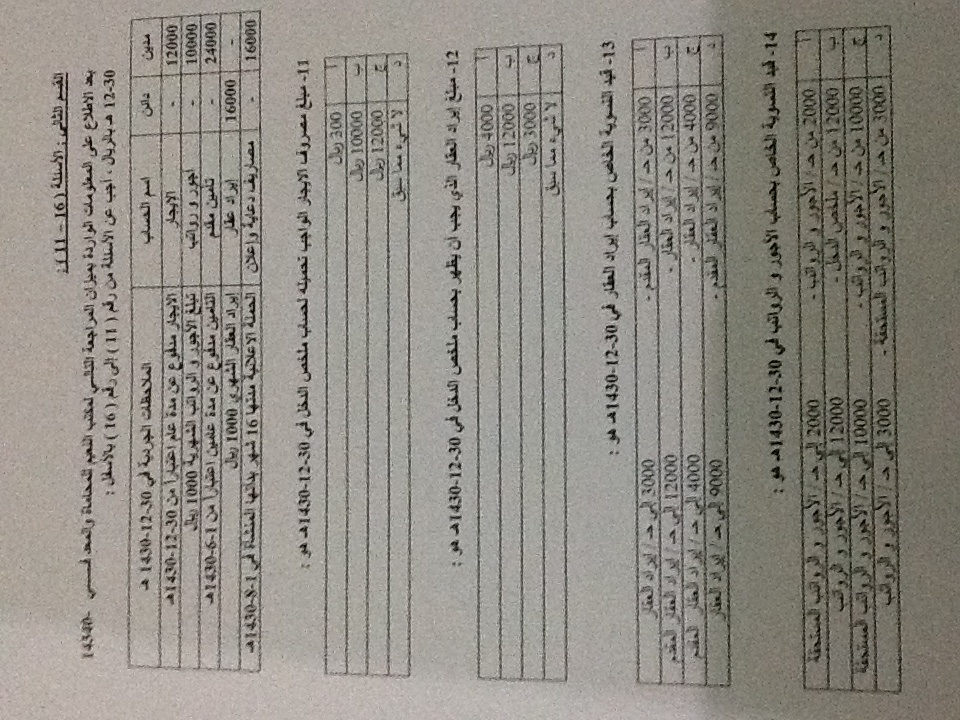 القسم الثاني: الأسئلة (16 – 11):
بعد الاطلاع على المعلومات الواردة بميزان المراجعة التالي لمكتب النعيم للمحاماة والمعد في
30-12 هـ بالريال ، اجب عن الأسئلة من رقم (11) إلى رقم (16) بالأسفل :
مدين دائن اسم الحساب الملاحظات الجردية في 30-12-1430 هـ
12000 - الإيجار الايجار مدفوع عن مدة عام اعتبارا من 30-12-1430هـ
10000 - أجور و رواتب تبلغ الأجور و الرواتب الشهرية 1000 ريال
24000 - تأمين مقدم التأمين مدفوع عن مدة عامين اعتبارا من 1-6-1430هـ
- 16000 إيراد عقار إيراد العقار الشهري 1000 ريال
16000 - مصاريف دعاية وإعلان الحملة الاعلانية مدتها 16 شهر بدأتها المنشأة في 1-8-1430هـ
11- مبلغ مصروف الايجار الواجب تحميله لحساب ملخص الدخل في 30-12-1430هـ هو :
أ 300 ريال
ب 10000 ريال
ج 12000 ريال
د لا شيء مما سبق
12- مبلغ إيراد العقار الذي يجب ان يظهر بحساب ملخص الدخل في 30-12-1430هـ هو :
أ 4000 ريال
ب 12000 ريال
ج 3000 ريال
د لا شيء مما سبق
13- قيد التسوية الخاص بحساب إيراد العقار في 30-12-1430هـ هو :
أ 3000 من حـ / إيراد العقار المقدم - 3000 إلى حـ / إيراد العقار
ب 12000 من حـ / إيراد العقار - 12000 إلى حـ / إيراد العقار المقدم
ج 4000 من حـ / إيراد العقار - 4000 إلى حـ / إيراد العقار المقدم
د 9000 من حـ / إيراد العقار المقدم - 9000 إلى حـ / إيراد العقار
14- قيد التسوية الخاص بحساب الأجور و الرواتب في 30-12-1430هـ هو :
أ 2000 من حـ / الأجور و الرواتب - 2000 إلى حـ / الأجور و الرواتب المستحقة
ب 12000 من حـ / ملخص الدخل - 12000 إلى حـ / الأجور و الرواتب
ج 10000 من حـ / الأجور و الرواتب - 10000 إلى حـ / الأجور و الرواتب المستحقة
د 3000 من حـ / الأجور و الرواتب المستحقة - 3000 إلى حـ / الأجور و الرواتب